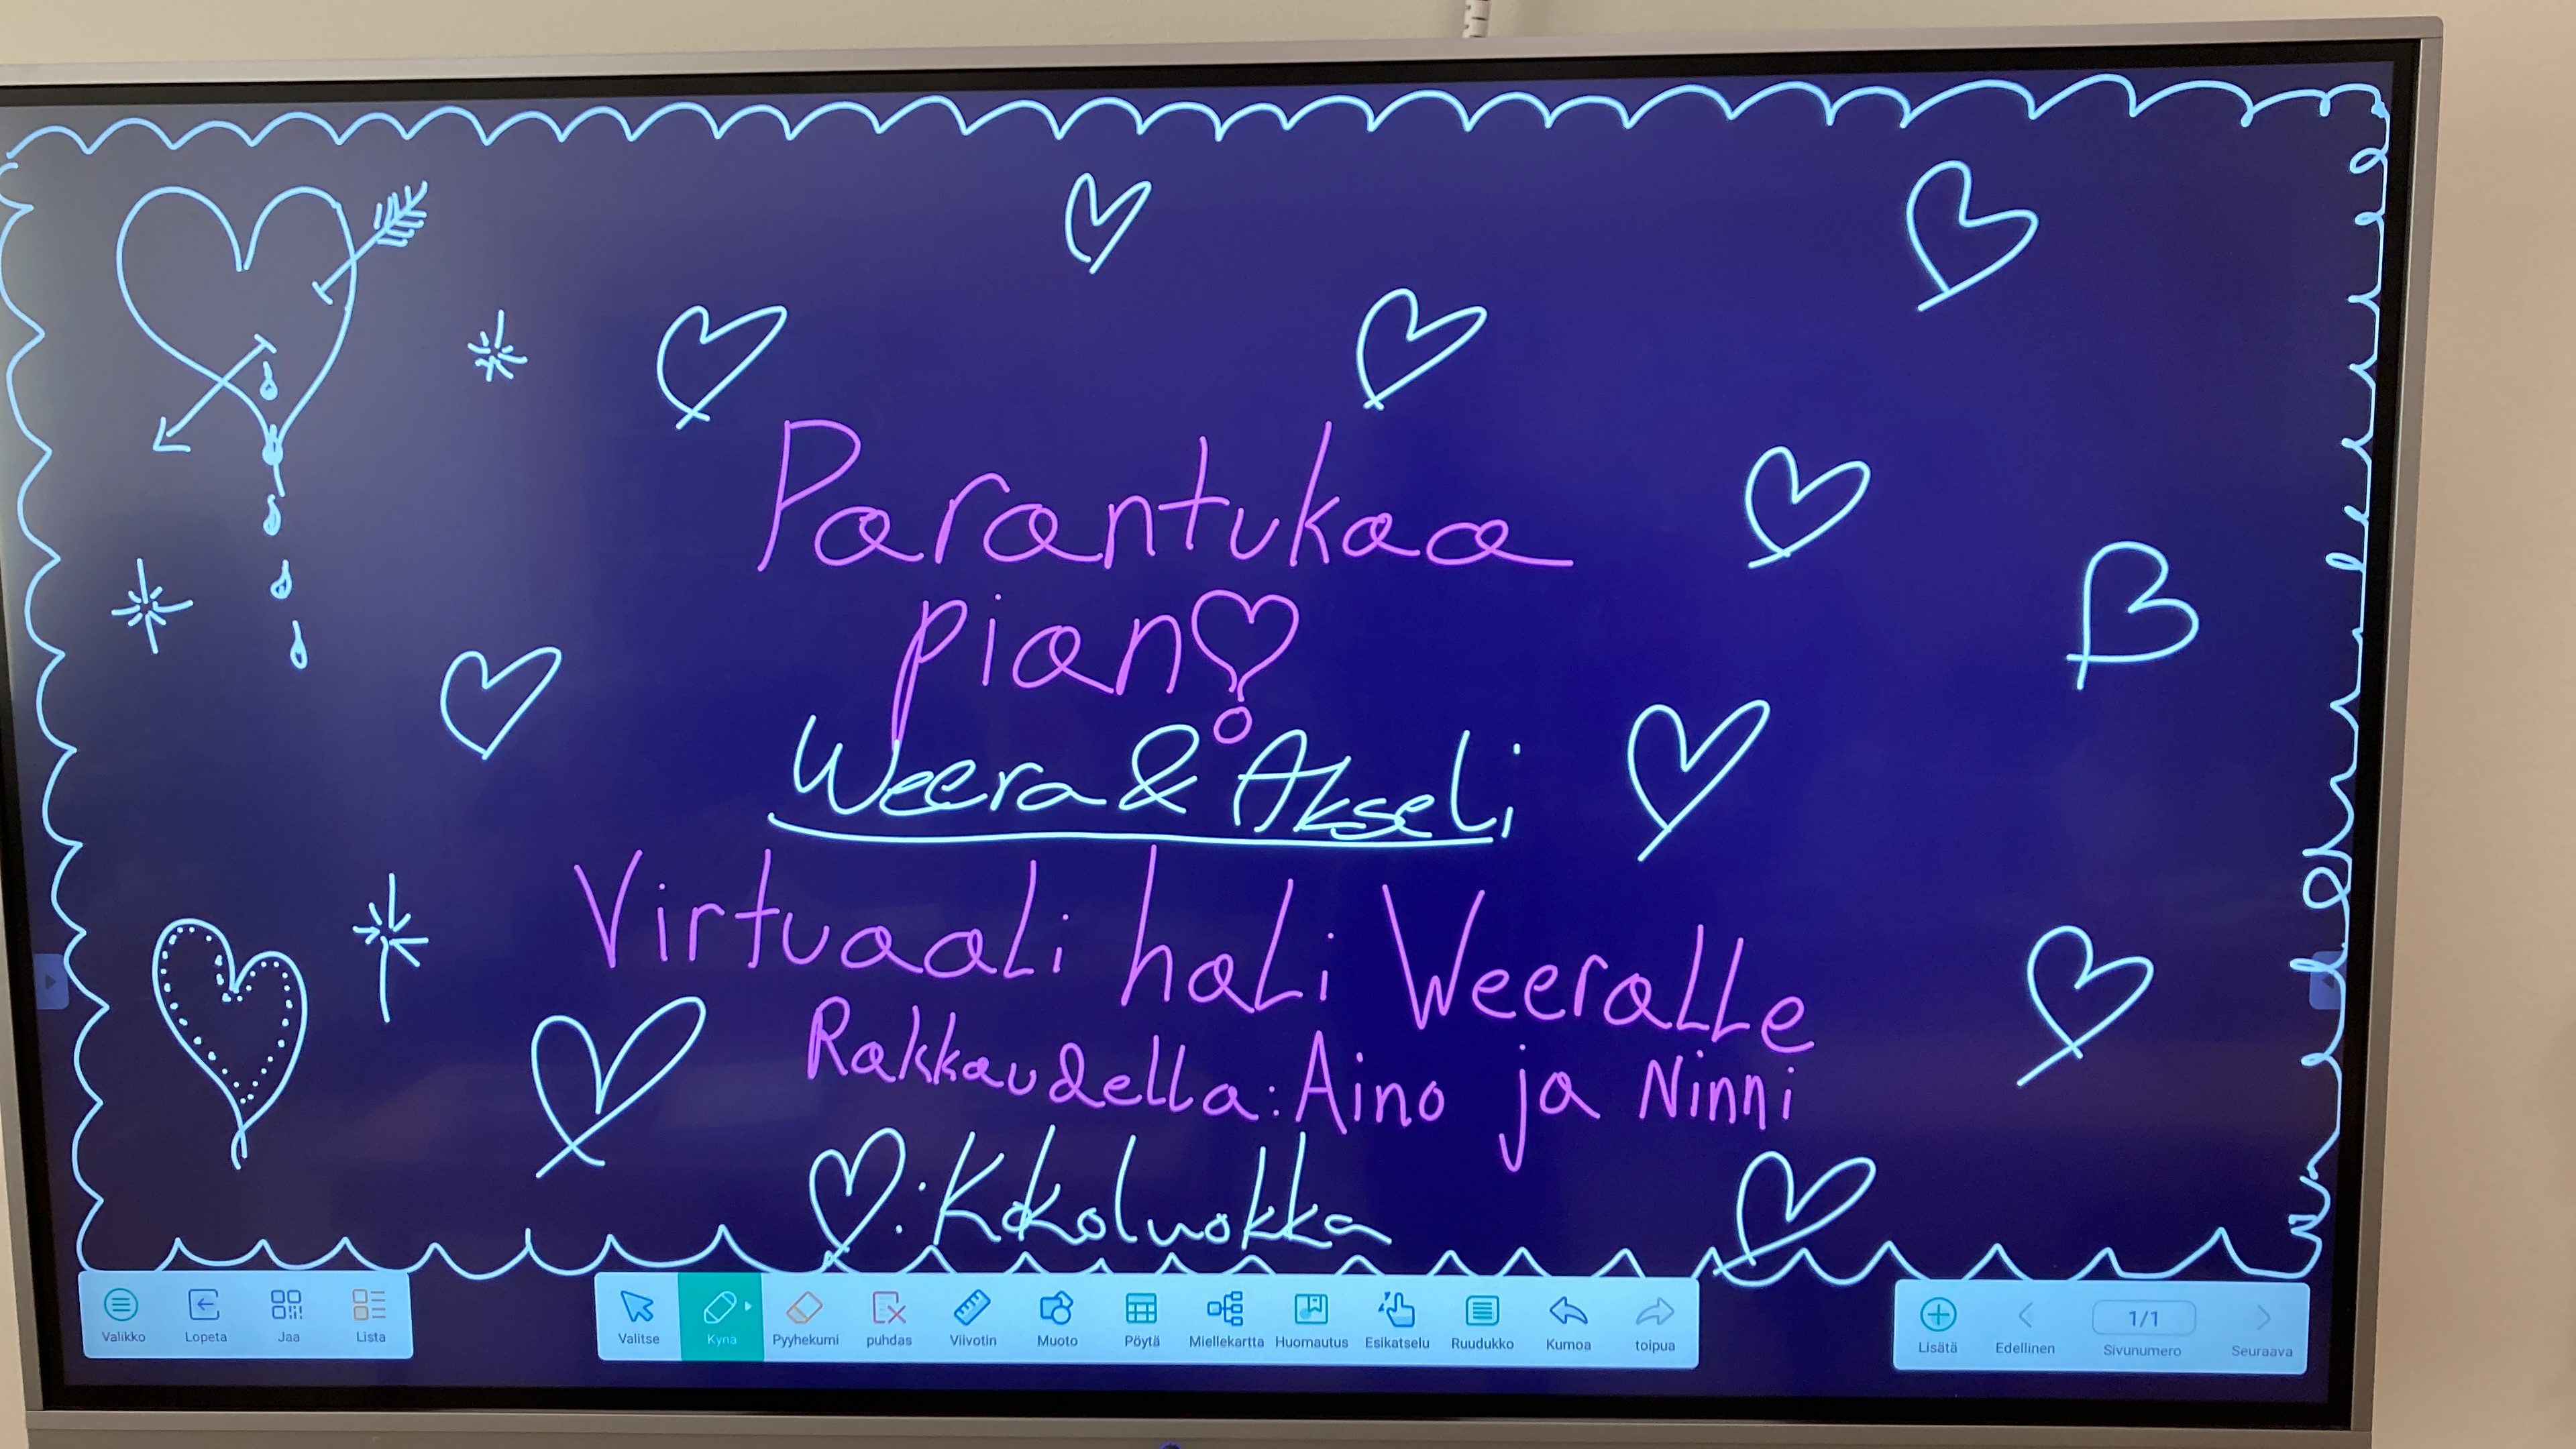 Parantukaa
pian
Weera & Akseli
Virtuaali hali Weeralle
Rakkaudella: Aino ja Ninni
: Kokoluokka
Valikko Lopeta Jaa Lista
Valitse Kynä Pyyhekumi puhdas Viivotin Muoto Pöytä Miellekartta Huomautus Esikatselu Ruudukko Kumoa toipua
1/1
Lisätä Edellinen Sivunumero Seuraava